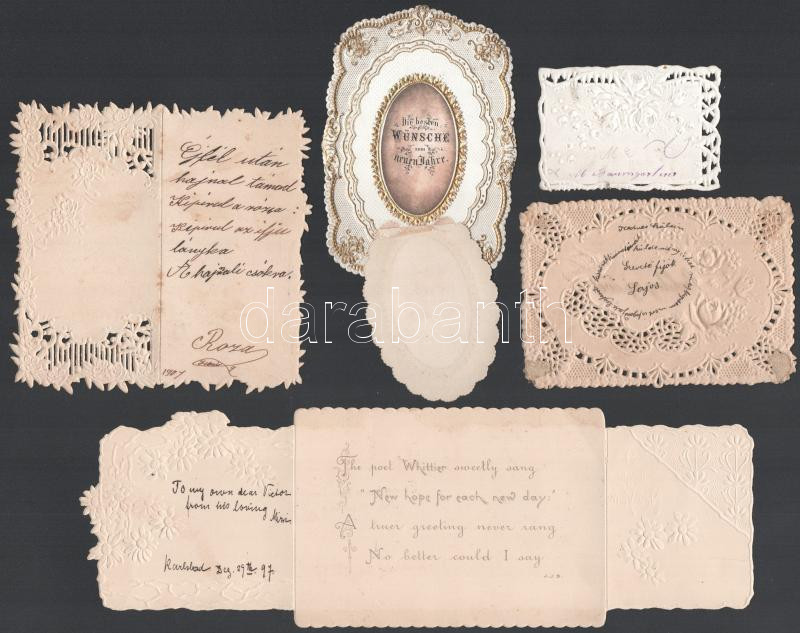 Éjfél után
hajnal támad
Kipirul a rózsa
Kipirul az ifjú
lányka
A hajnali csókra.
Roza
1907
Die besten
WÜNSCHE
zum
neuen Jahre.
M. Baumgarten
Szerető fijok
Lajos
darabanth
To my own dear Victor
from his loving
Karlsbad Dez. 29th. 97.
The poet Whittier sweetly sang
"New hope for each new day:"
A truer greeting never rang
No better could I say